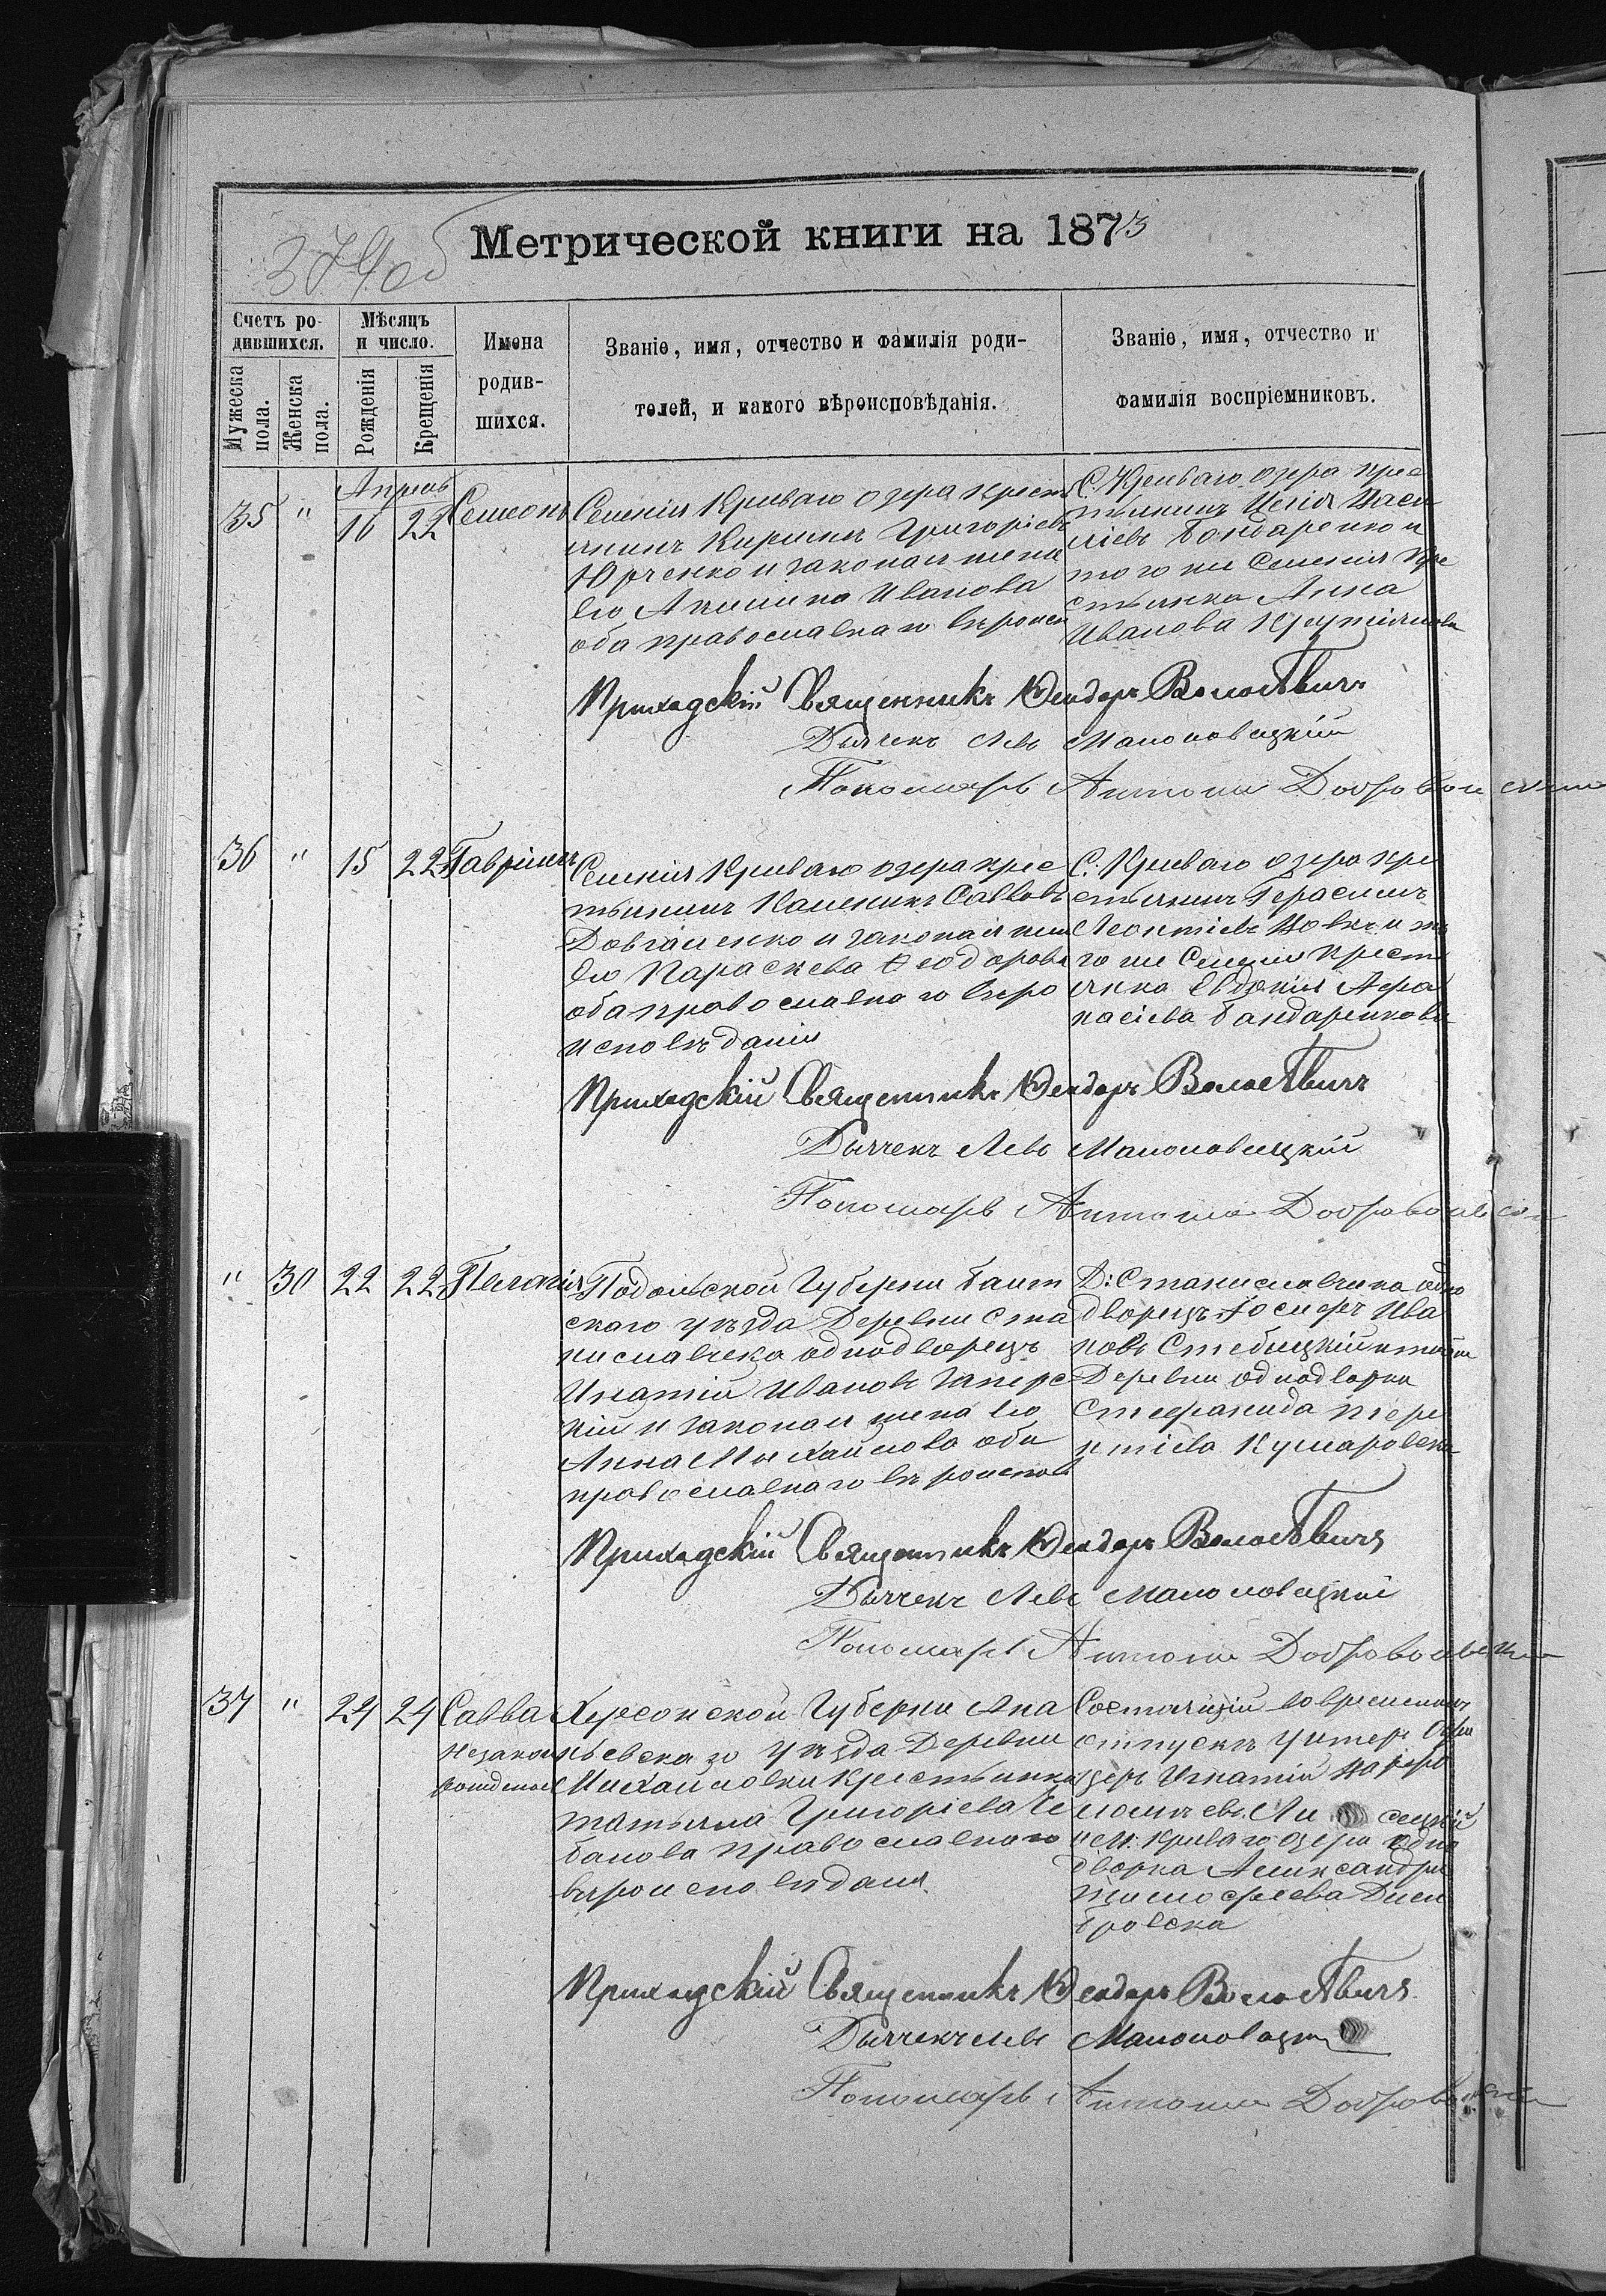 374об
Метрической книги на 1873
Счетъ ро-
дившихся.
Мужеска
пола.
Женска
пола.
Мѣсяцъ
и число.
Рожденія
Крещенія
Имена
родив-
шихся.
Званіе, имя, отчество и фамилія роди-
телей, и какого вѣроисповѣданія.
Званіе, имя, отчество и
фамилія воспріемниковъ.
Апрель
35 " 16 22 Семеонъ
Селенія Криваго озера крест
янинъ Кирилъ Григоріевъ
Юрченко и законая жена
его Акилина Иванова
оба православнаго вѣроисп
С. Криваго озера кре
стьянинъ
Бондаренко и
того же Селенія кре
стьянка Анна
Иванова
Приходскій Священникъ Ѳеодоръ
Дьячекъ Левъ Малоновецкій
Пономарь Антоній Добровольскій
36 " 15 22 Гавріилъ
Селенія Криваго озера крес
тьянинъ Калиникъ Саввовъ
Довгаленко и законая жена
его Параскева Ѳеодорова
оба православнаго вѣро
исповѣданія
С. Криваго озера кре
стьянинъ Герасимъ
Леонтіевъ Вовкъ и то
го же Селенія крест
янка Евдокія Афа
насіева Бандаренкова
Приходскій Священникъ Ѳеодоръ
Дьячекъ Левъ Малоновецкій
Пономарь Антоній Добровольскій
" 30 22 22 Пелагія
Подольской Губерни Балт
скаго уѣзда Деревни Ста
ниславчека однодворецъ
Игнатій Ивановъ
и законая жена его
Анна Михайлова оба
православнаго вѣроиспов
Д: Станиславчика одно
дворецъ Іосифъ Ива
новъ Стебицкій и тойже
Деревни однодворка
Стефанида Тере
нтіева
Приходскій Священникъ Ѳеодоръ
Дьячекъ Левъ Малоновецкій
Пономарь Антоній Добровольскій
37 " 24 24 Савва
Незакон
рожденый
Херсонской Губерни Ана
ньевскаго уѣзда Деревни
Михайловки Крестьянка
Татьяна Григоріева Че
банова православнаго
вѣроисповѣдания
Состоящій во временномъ
отпускѣ Унтеръ Офи
церъ Игнатій
и М: Криваго Озера одно
дворка Александра
Тимофеева Дом
бровска
Приходскій Священникъ Ѳеодоръ
Дьячекъ Левъ
Пономарь Антоній